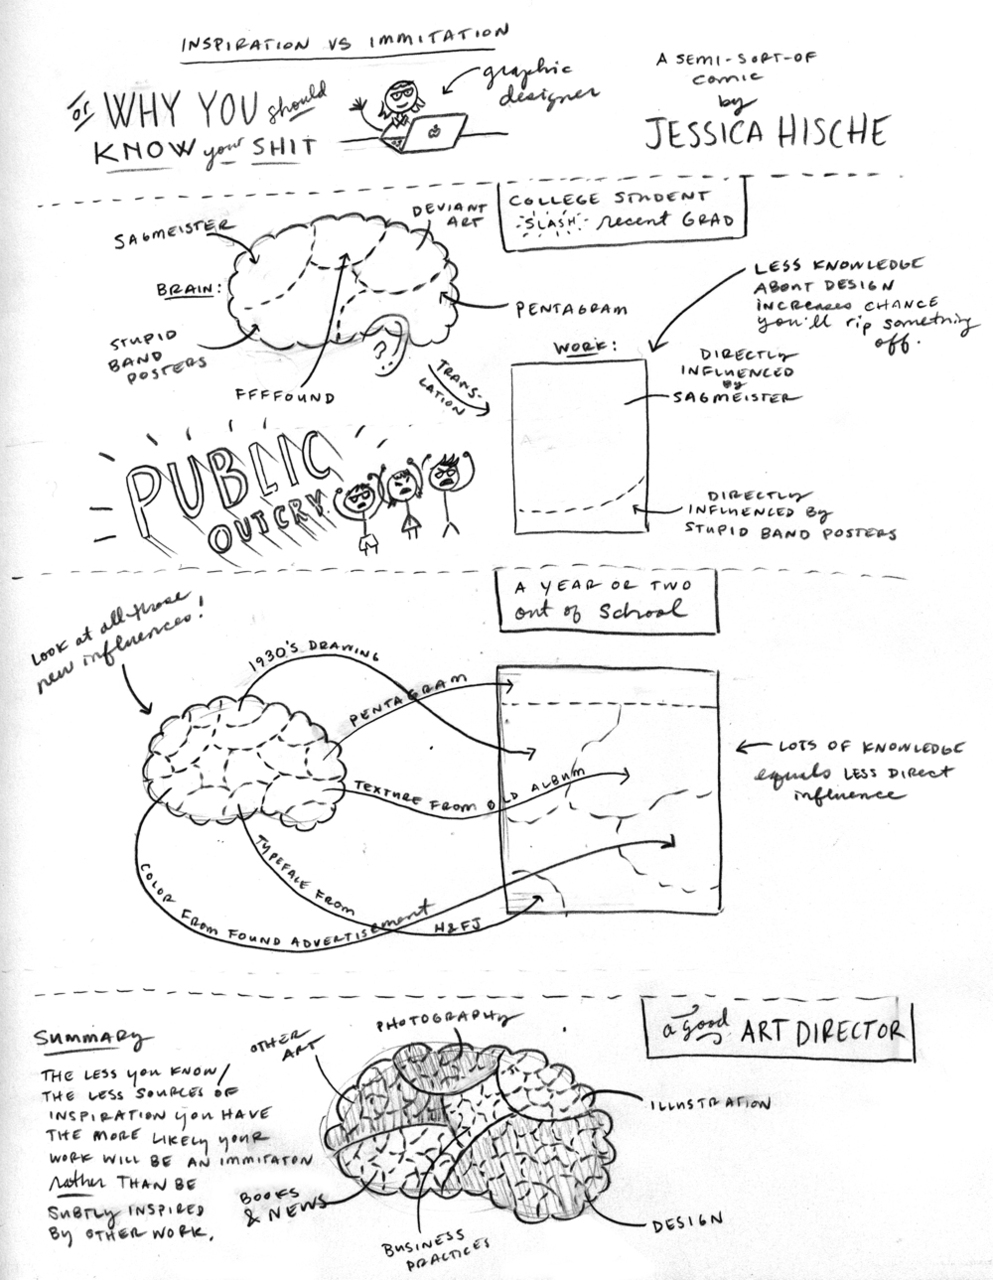 INSPIRATION VS IMMITATION
or WHY YOU should
KNOW your SHIT
graphic
designer
A SEMI-SORT-OF
comic
by
JESSICA HISCHE
COLLEGE STUDENT
SLASH recent GRAD
SAGMEISTER
DEVIANT
ART
BRAIN:
PENTAGRAM
STUPID
BAND
POSTERS
FFFFOUND
?
TRANS-
LATION
LESS KNOWLEDGE
ABOUT DESIGN
INCREASES CHANCE
you'll rip something
off.
WORK:
DIRECTLY
INFLUENCED
BY
SAGMEISTER
DIRECTLY
INFLUENCED By
STUPID BAND POSTERS
PUBLIC
OUTCRY.
A YEAR OR TWO
out of School
Look at all those
new influences!
1930'S DRAWING
PENTAGRAM
TEXTURE FROM OLD ALBUM
TYPEFACE FROM H&FJ
COLOR FROM FOUND ADVERTISEment
LOTS OF KNOWLEDGE
equals LESS DIRECT
influence
a good ART DIRECTOR
SUMMARY
THE LESS YOU KNOW/
THE LESS SOURCES OF
INSPIRATION you HAVE
THE MORE LIKELY YOUR
WORK WILL BE AN IMMITATON
rather THAN BE
SUBTLY INSPIRED
By OTHER WORK.
OTHER
ART
PHOTOGRAPHY
ILLUSTRATION
DESIGN
BUSINESS
PRACTICES
BOOKS
& NEWS